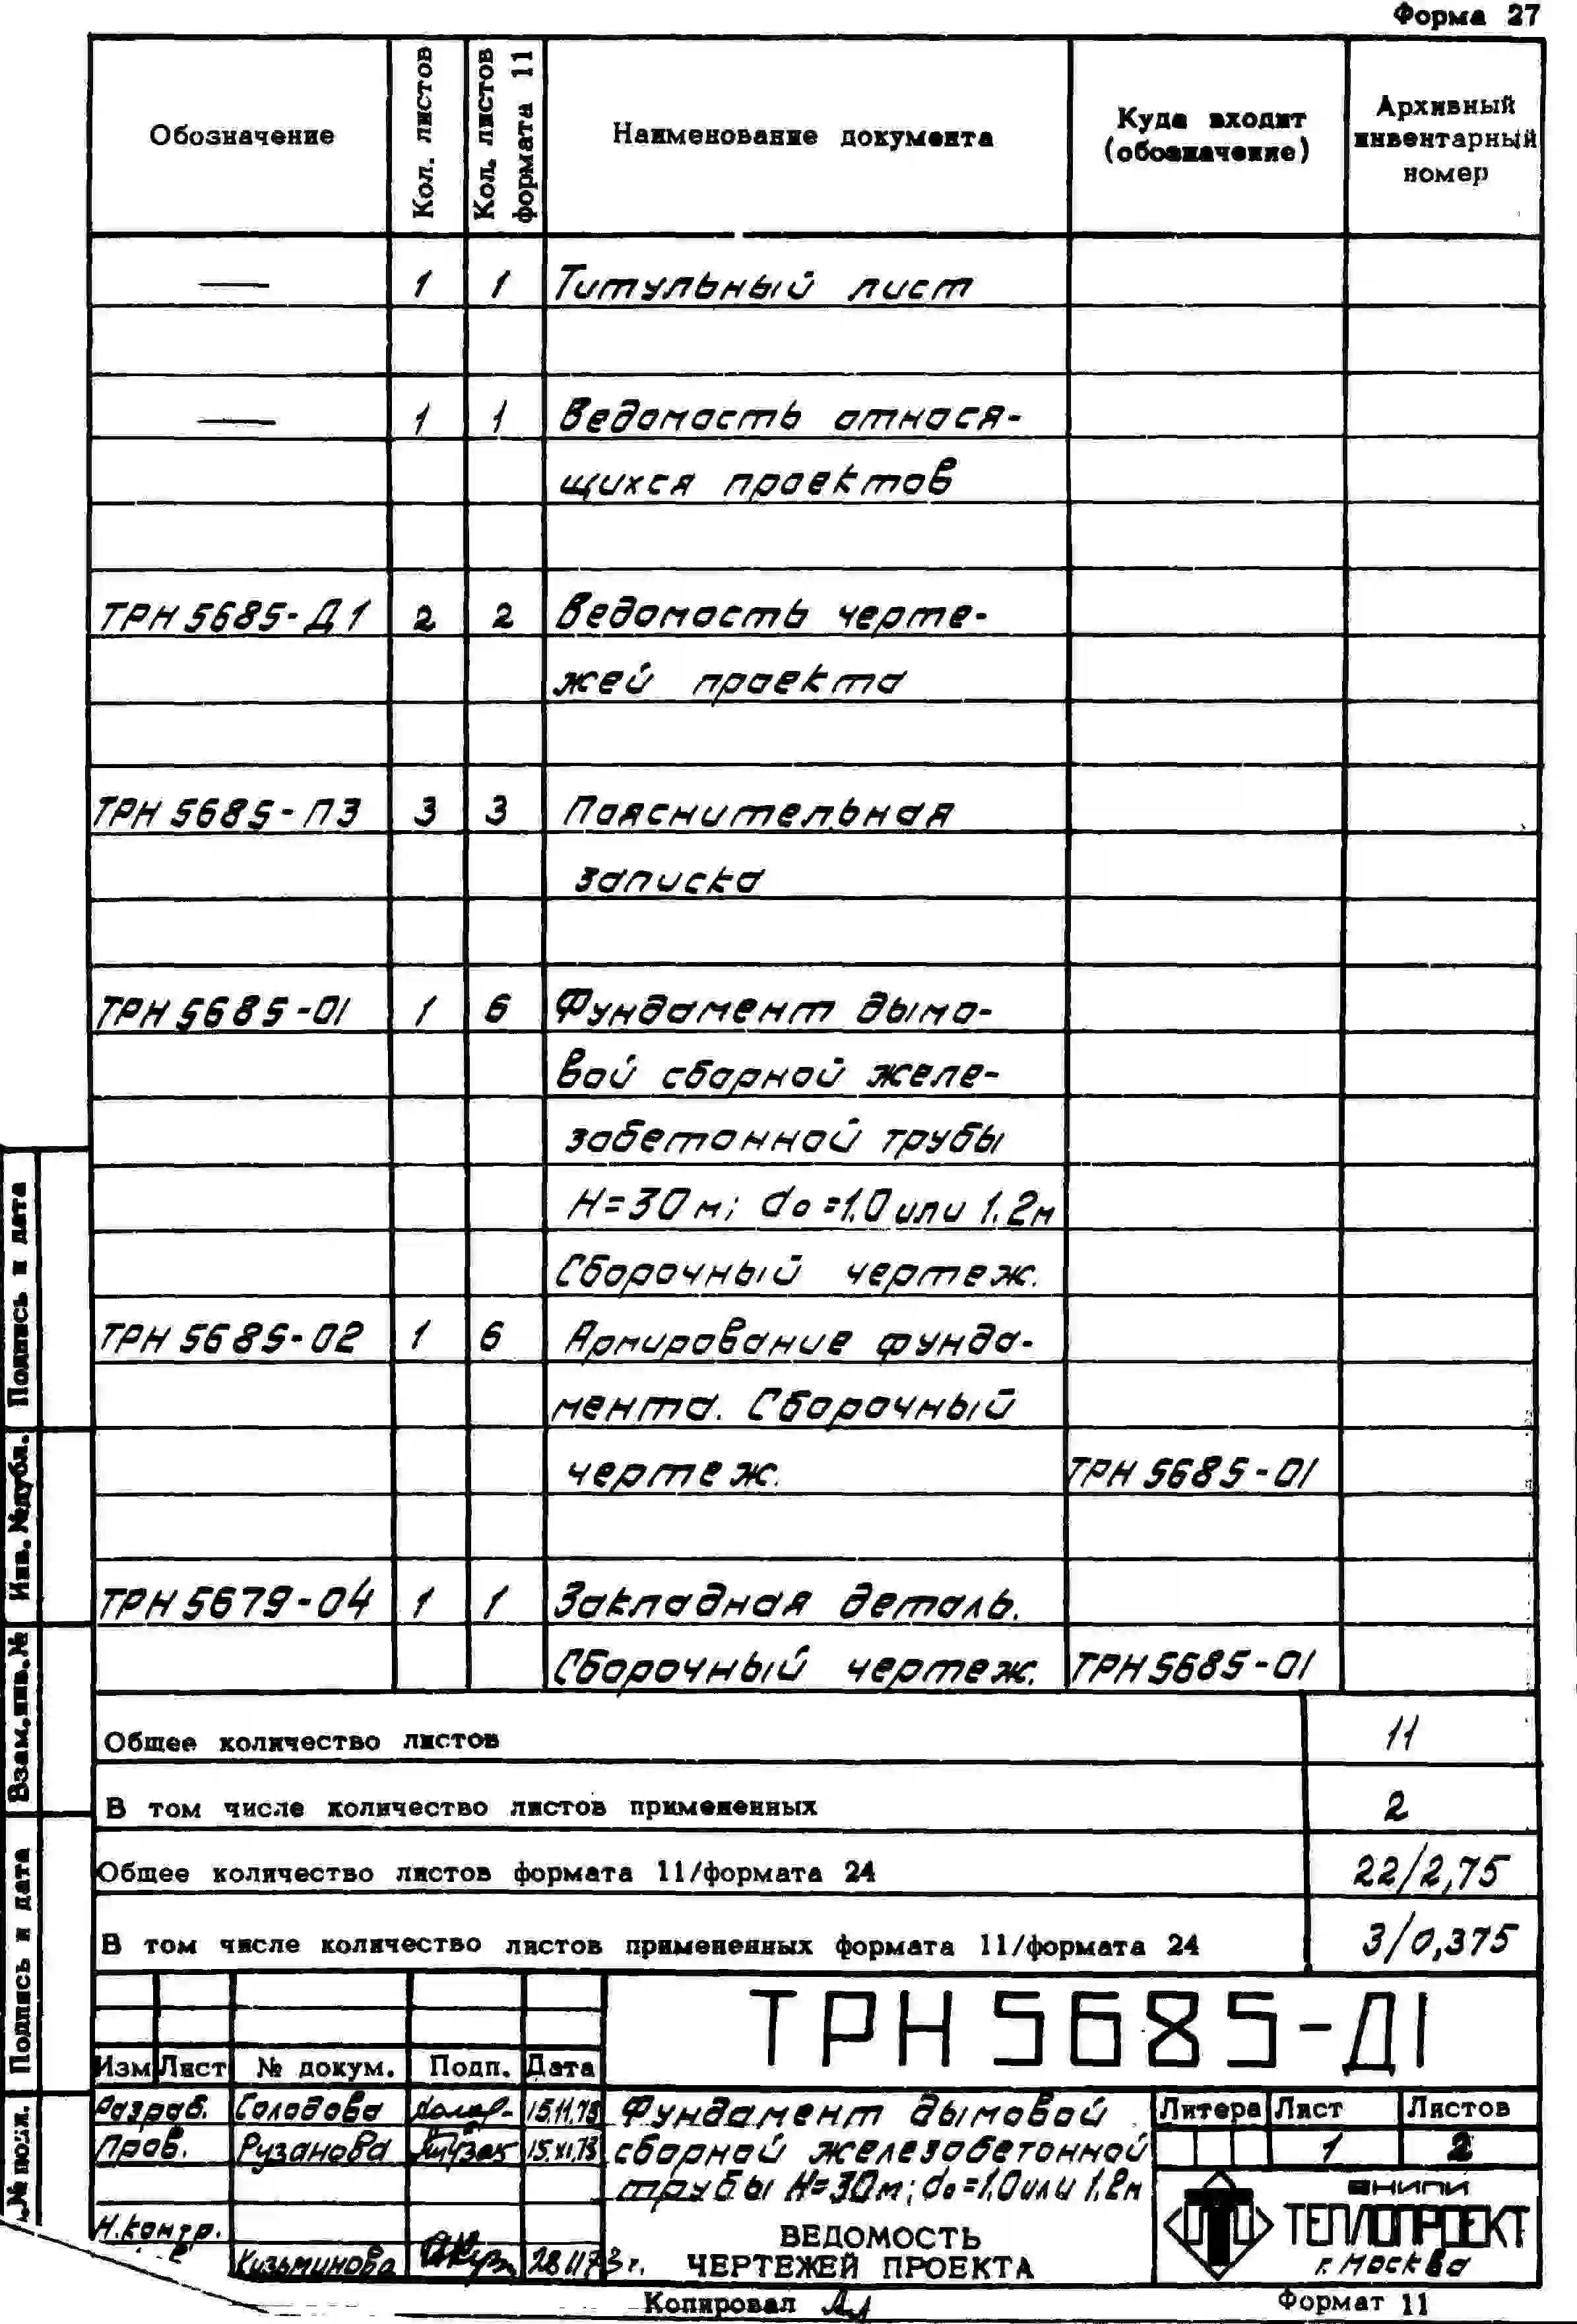 Форма 27
Обозначение
Кол. листов
Кол. листов
формата 11
Наименование документа
Куда входит
(обозначение)
Архивный
инвентарный
номер
— 1 1 Титульный лист
— 1 1 Ведомость относя-
щихся проектов
ТРН 5685-Д1 2 2 Ведомость черте-
жей проекта
ТРН 5685-ПЗ 3 3 Пояснительная
записка
ТРН 5685-01 1 6 Фундамент дымо-
вой сборной желе-
зобетонной трубы
Н=30м; do=1.0 или 1.2м
Сборочный чертеж.
ТРН 5685-02 1 6 Армирование фунда-
мента. Сборочный
чертеж. ТРН 5685-01
ТРН 5679-04 1 1 Закладная деталь.
Сборочный чертеж. ТРН 5685-01
Общее количество листов 11
В том числе количество листов примененных 2
Общее количество листов формата 11/формата 24 22/2,75
В том числе количество листов примененных формата 11/формата 24 3/0,375
Подпись и дата
Инв. № дубл.
Взам. инв. №
Подпись и дата
№ подл.
ТРН 5685-Д1
Изм Лист № докум. Подп. Дата
Разраб. Солодова 15.11.73
Пров. Рузанова 15.XI.73
Н.контр.
Кузьминова 28.11.73г.
Фундамент дымовой
сборной железобетонной
трубы Н=30м; do=1,0 или 1.2м
ВЕДОМОСТЬ
ЧЕРТЕЖЕЙ ПРОЕКТА
Литера Лист Листов
1 2
ВНИПИ
ТЕПЛОПРОЕКТ
г. Москва
Копировал
Формат 11